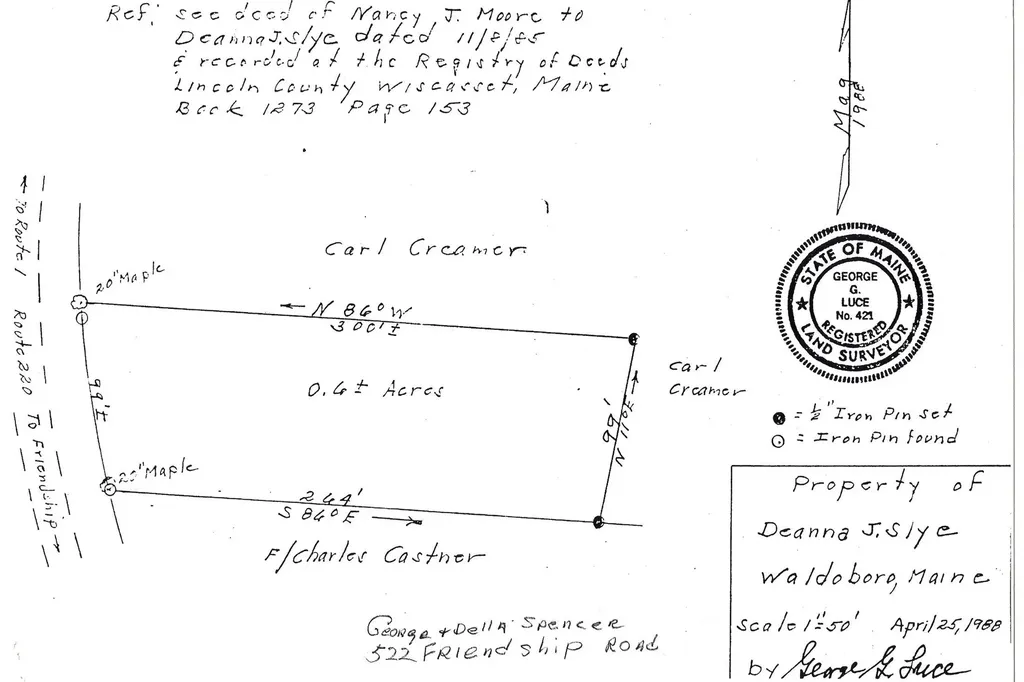 Ref: see deed of Nancy J. Moore to
Deanna J. Slye dated 11/8/85
& recorded at the Registry of Deeds
Lincoln County Wiscasset, Maine
Book 1273 Page 153
Mag
1988
← To Route 1 Route 220 To Friendship →
Carl Creamer
20" Maple
← N 86° W
300' ±
STATE OF MAINE
GEORGE
G.
LUCE
No. 421
REGISTERED
LAND SURVEYOR
0.6 ± Acres
Carl
Creamer
99' ±
99'
N 11° E →
= ½" Iron Pin set
= Iron Pin found
20" Maple
264'
S 86° E →
F/Charles Castner
Property of
Deanna J. Slye
Waldoboro, Maine
scale 1"=50' April 25, 1988
by George G. Luce
George + Della Spencer
522 Friendship Road